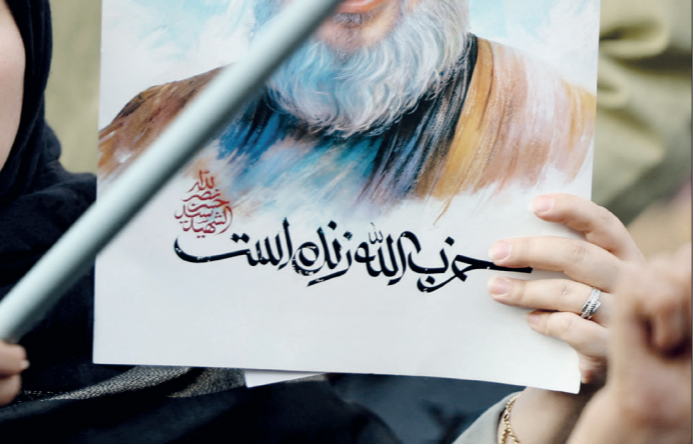 الشهيد
السيد
حسن
نصر
الله
حزب الله زنده است